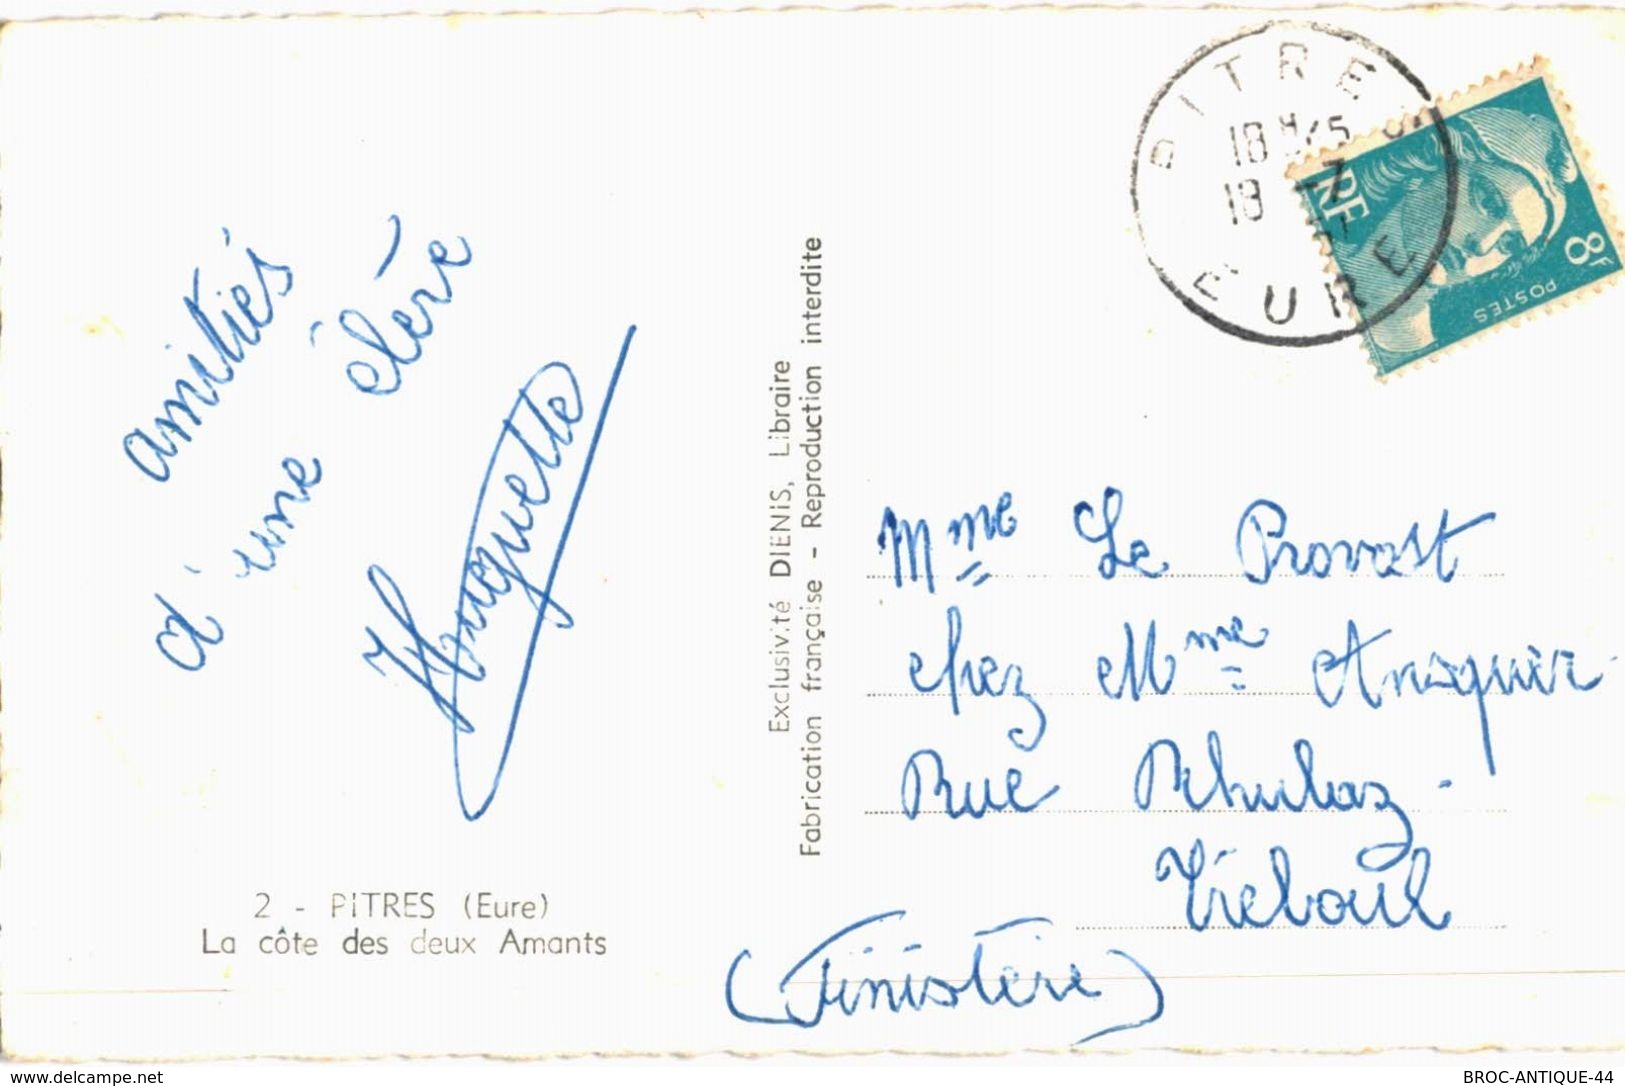 amitiés
d'une élève
Huguette
2 - PITRES (Eure)
La côte des deux Amants
Exclusivité DIENIS, Libraire
Fabrication française - Reproduction interdite
PITRES
18 H 45
18 -7
EURE
RF
8F
POSTES
Mme Le Provost
chez Mme
Rue
Tréboul
(Finistère)
www.delcampe.net
BROC-ANTIQUE-44